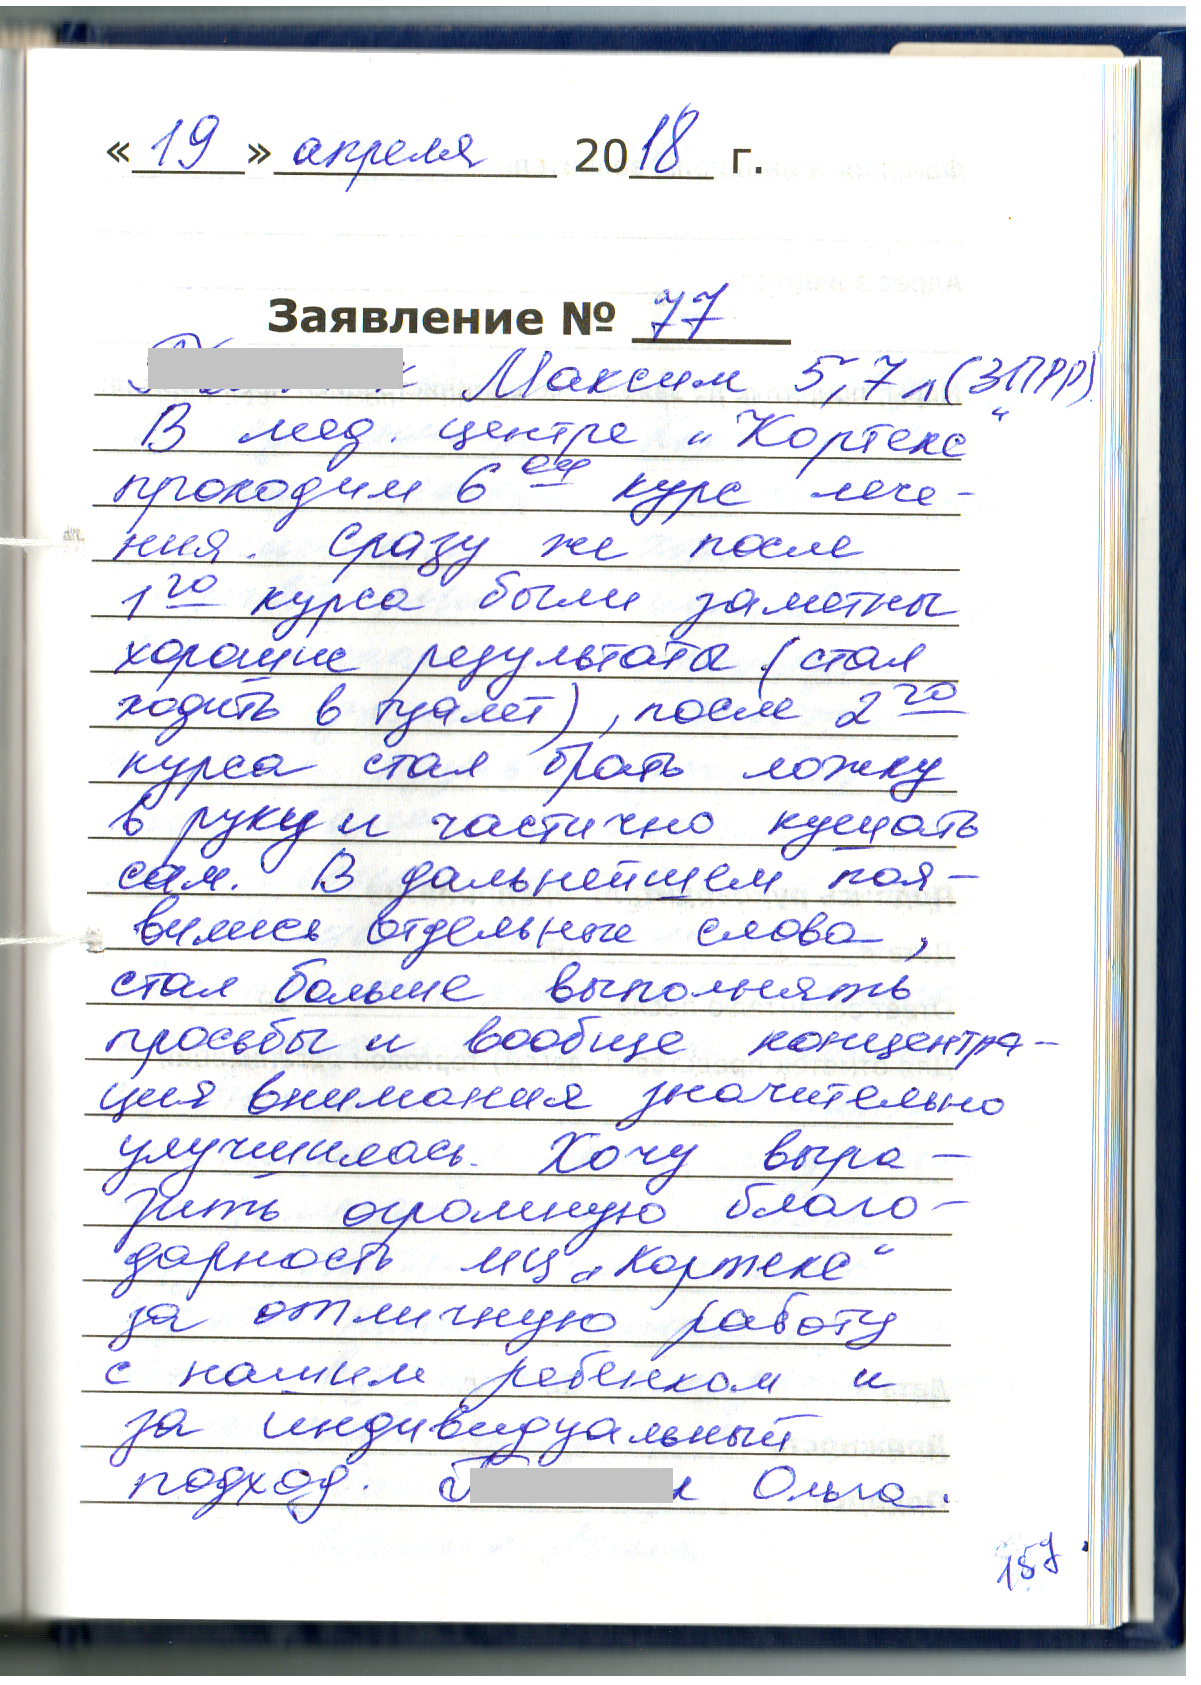 «19» апреля 2018 г.
Заявление № 77
Максим 5,7 л (ЗПРР)
В мед. центре „Кортекс“
проходим 6ой курс лече-
ния. Сразу же после
1го курса были заметны
хорошие результаты (стал
ходить в туалет), после 2го
курса стал брать ложку
в руку и частично кушать
сам. В дальнейшем поя-
вились отдельные слова,
стал больше выполнять
просьбы и вообще концентра-
ция внимания значительно
улучшилась. Хочу выра-
зить огромную благо-
дарность МЦ „Кортекс“
за отличную работу
с нашим ребенком и
за индивидуальный
подход. Ольга.
157